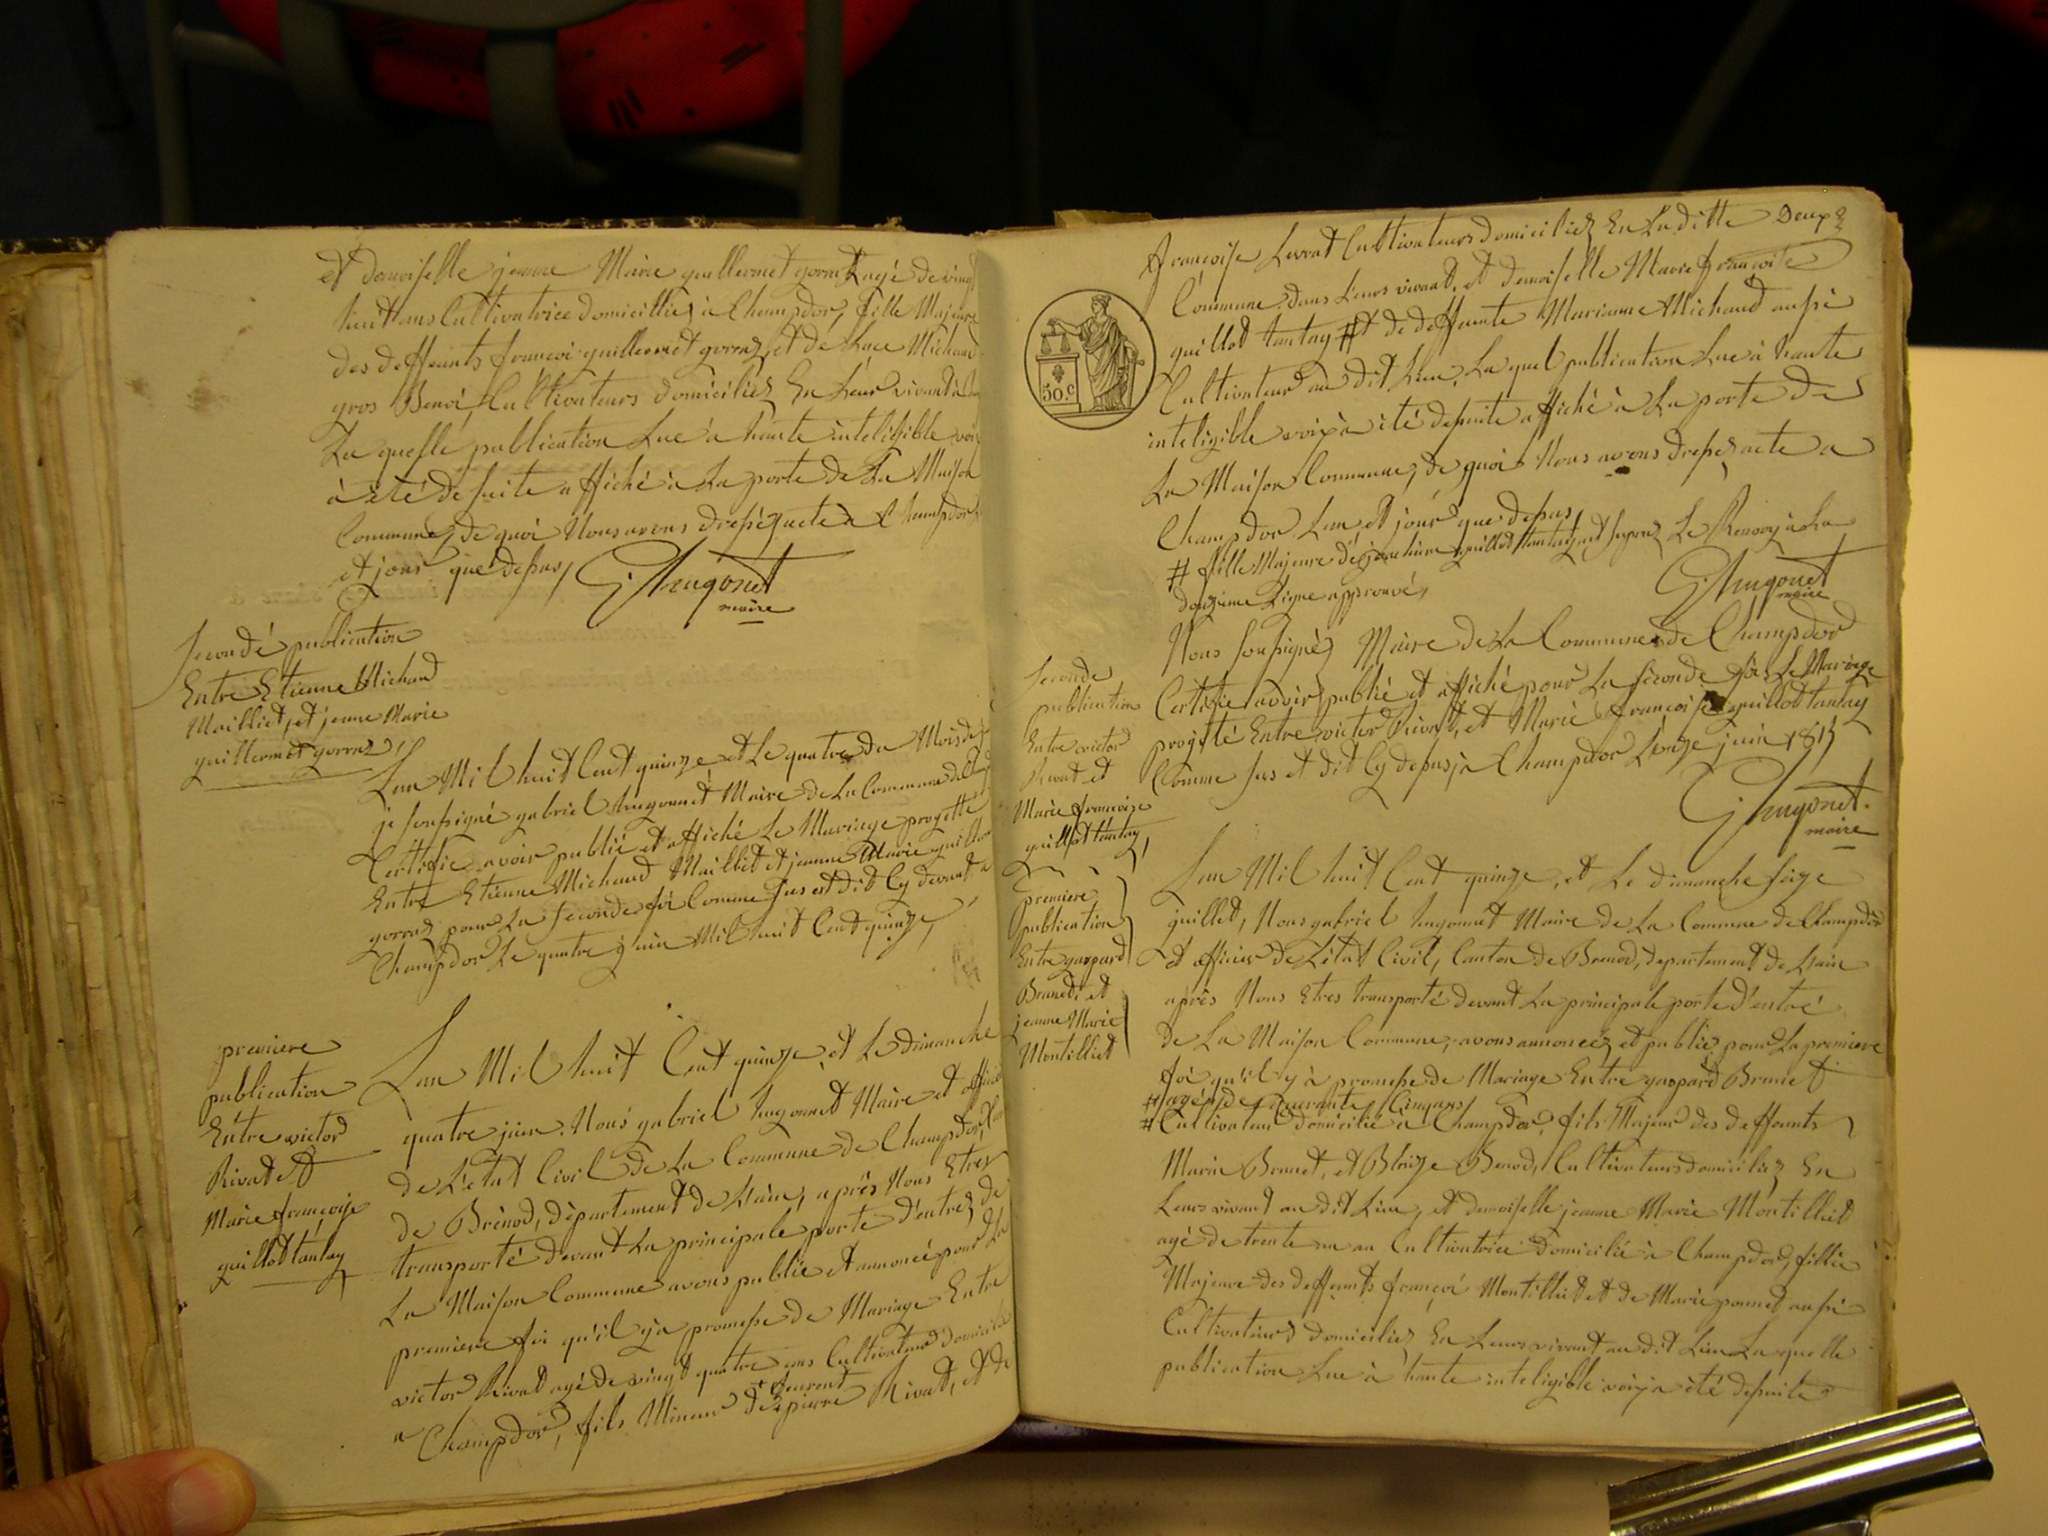 et demoiselle jeanne Marie guillermet gorraz agé de vingt
huit ans Cultivatrice domiciliez à Champdor, fille Majeure
des deffeunts françoi guillermet gorraz, et de Michaud
gros Benoi, Cultivateurs domiciliez En Leur vivant
La quelle publication Lue a haute inteligible voix
à été de suite affiché à La porte de La Maison
Commune, de quoi Nous avons dressé acte à Champdor
et jour que dessus,
G. hugonet
maire
seconde publication
Entre Etienne Michaud
Mailliet, et jeanne Marie
guillermet gorraz,
Lan Mil huit Cent quinze et Le quatre du Mois de
je soussigné gabriel hugonnet Maire de La Commune de
Certifie avoir publié et affiché Le Mariage projetté
Entre Etienne Michaud Mailliet et jeanne Marie
gorraz pour La seconde foi Comme sus est dit Cy devant a
Champdor Le quatre juin Mil huit Cent quinze,
premiere
publication
Entre victor
Rivat et
Marie françoise
guillot tantay
Lan Mil huit Cent quinze, et Le dimanche
quatre juin. Nous gabriel hugonnet Maire et officier
de L'état Civil de La Commune de Champdor,
de Brénod, département de L'ain, après Nous Etres
transporté devant La principale porte d'entrez de
La Maison Commune avons publié et annoncé pour La
premiere foi qu'il y a promesse de Mariage Entre
victor Rivat agé de vingt quatre ans Cultivateur domicilié
a Champdor, fils Mineur de feu pierre Rivat, et de
françoise Levrat Cultivateurs domiciliez En La ditte Deux
Commune dans Leurs vivant, et demoiselle Marie françoise
guillot tantay # et de deffeunte Marianne Michaud aussi
Cultivateur au dit Lieu, La quel publication Lue à haute
inteligible voix à été de suite affiché à La porte de
La Maison Commune, de quoi Nous avons dressez acte a
Champdor Lan et jour que dessus,
# fille Majeure de guillot tantay Le Renvoy à La
douzieme Ligne approuvé,
G. hugonet
maire
50.c
seconde
publication
Entre victor
Rivat et
Marie françoise
guillot tantay,
Nous soussignéz Maire de La Commune de Champdor
Certifie avoir publié et affiché pour La seconde fois Le Mariage
projetté Entre victor Rivat, et Marie françoise guillot tantay
Comme sus et dit Cy dessus, a Champdor Le onze juin 1815
G. hugonet.
maire
premiere
publication
Entre gaspard
Brunet et
jeanne Marie
Montilliet
Lan Mil huit Cent quinze, et Le dimanche seize
juillet, Nous gabriel hugonnet Maire de La Commune de Champdor
et officier de L'état Civil, Canton de Brenod, departement de L'ain
après Nous Etres transporté devant La principale porte d'entré
de La Maison Commune, avons annoncez et publiez pour La premiere
foi qu'il y à promesse de Mariage Entre gaspard Brunet
# agé de quarante Cinq ans
# Cultivateur domicilié a Champdor, fils Majeur des deffeunts
Marin Brunet, et Blaize Benod, Cultivateurs domiciliez En
Leurs vivant au dit Lieu, et demoiselle jeanne Marie Montilliet
agé de trente un an Cultivatrice domicilié à Champdor, fillie
Majeure des deffeunts françoi Montilliet et de Marie ponnet aussi
Cultivateurs domiciliez En Leurs vivant au dit Lieu La quelle
publication Lue à haute inteligible voix a été de suite